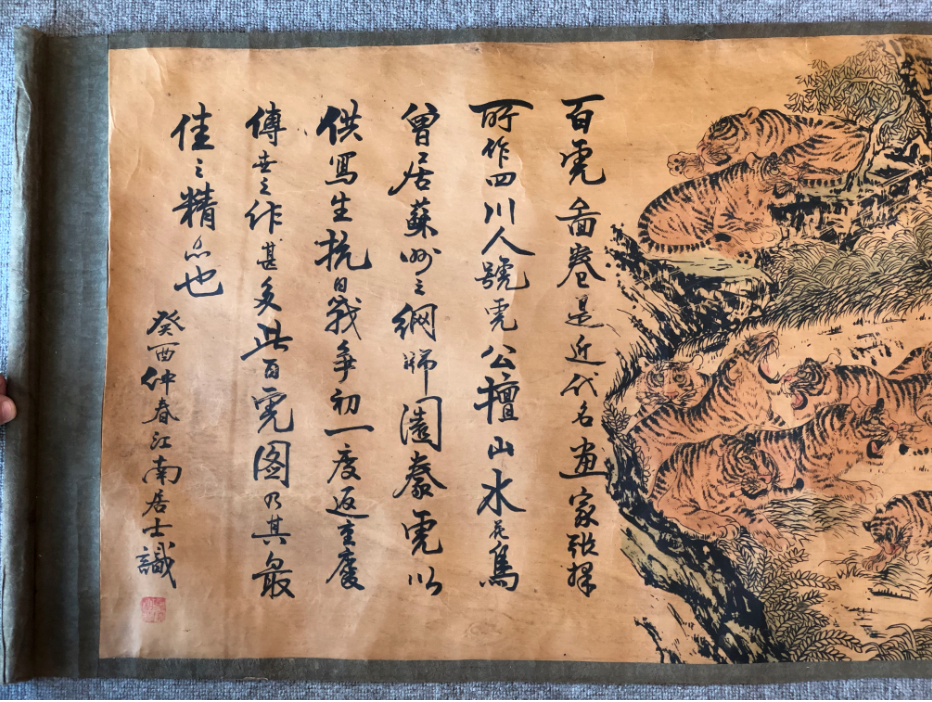 百虎啚卷是近代名画家張擇
所作四川人號虎公擅山水花鳥
曾居蘇州之網師園豢虎以
供寫生抗日戰争初一度返重慶
傳世之作甚多此百虎图乃其最
佳之精品也
癸酉仲春江南居士識